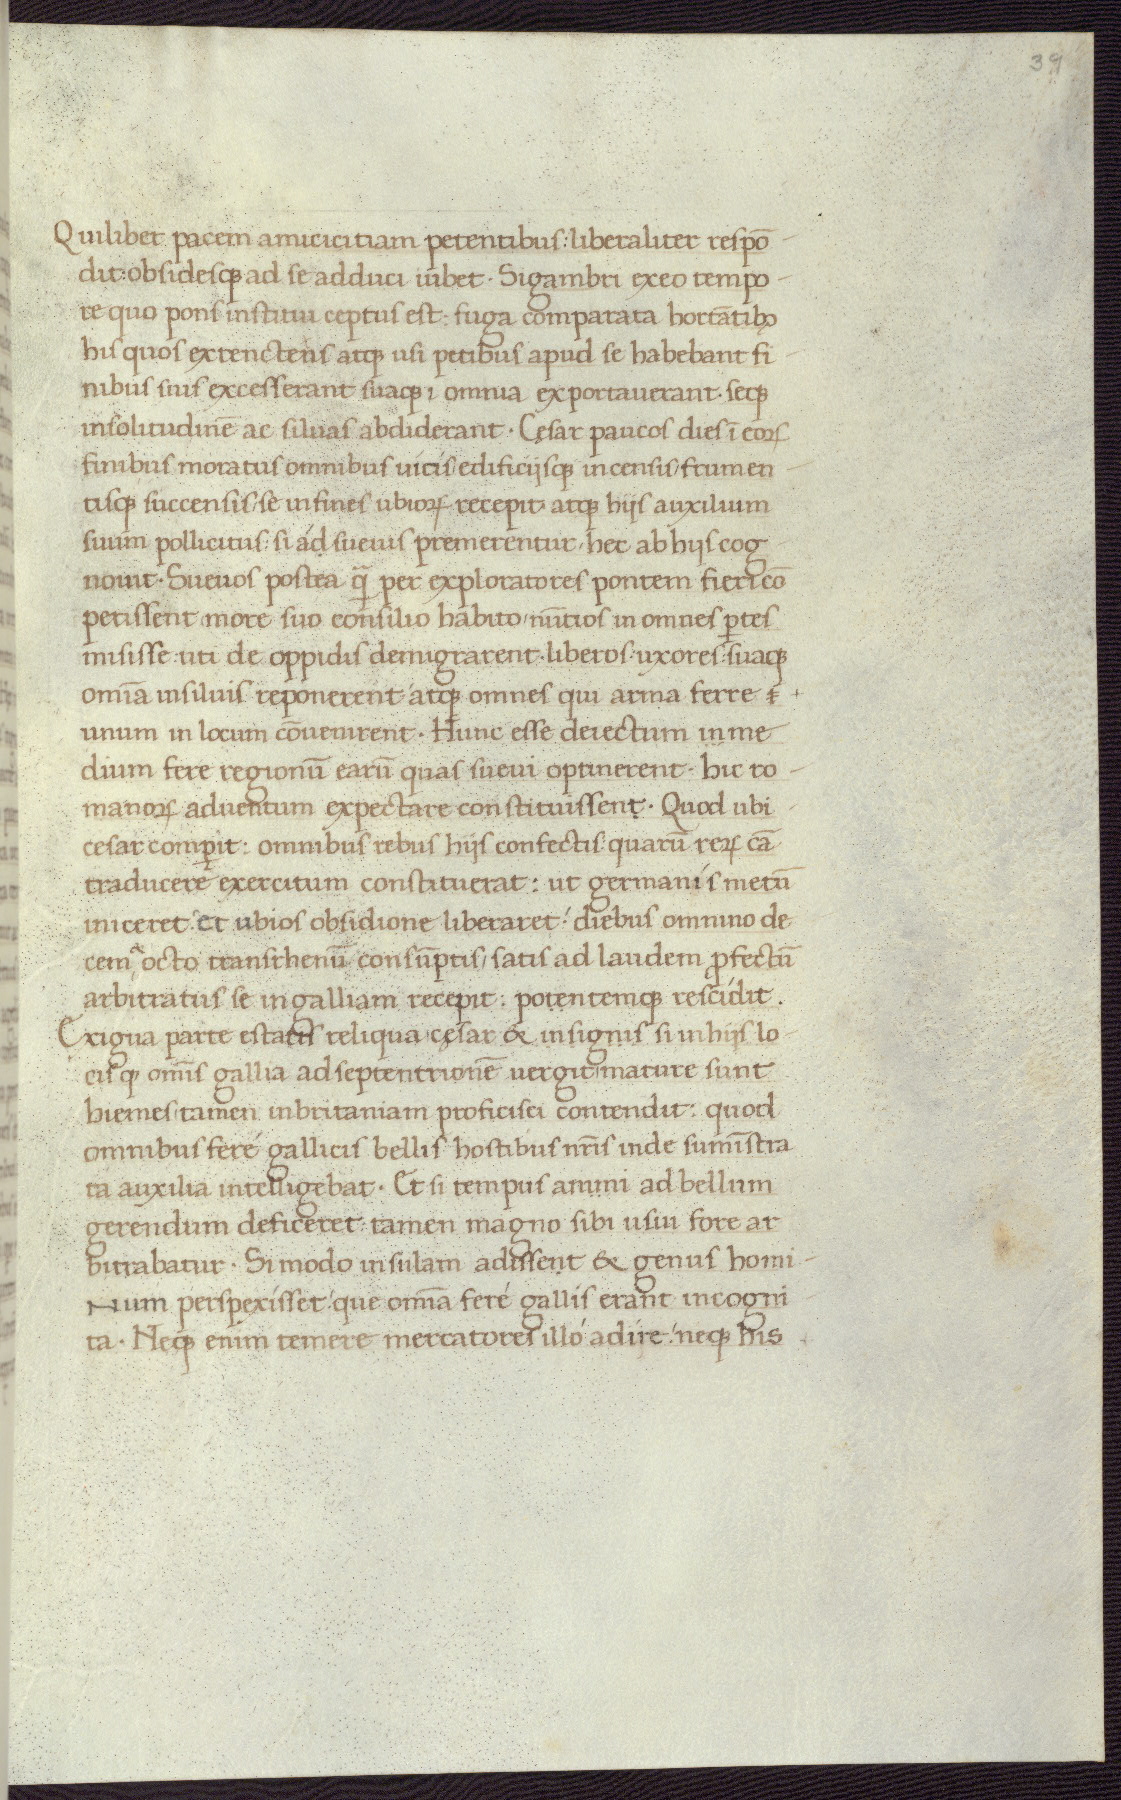 39
Quilibet pacem amicicitiam petentibus: liberaliter respō-
dit: obsidesqꝫ ad se adduci iubet. Sigambri exeo tempo-
re quo pons institui ceptus est: fuga comparata hortātibꝫ
his quos extencteris atqꝫ usi petibus apud se habebant fi-
nibus suis excesserant suaqꝫ omnia exportauerant. seqꝫ
insolitudinē ac siluas abdiderant. Cęsar paucos dies ī eoꝝ
finibus moratus omnibus uicis edificiisqꝫ incensis / frumen-
tisqꝫ succensis / se infines ubioꝝ recepit atqꝫ hijs auxilium
suum pollicitus: si ad sueuis premerentur / hec ab hijs cog
nouit. Sueuos postea q̄ per exploratores pontem fieri cō
petissent more suo consilio habito / nūtios in omnes ꝑtes
misisse uti de oppidis demigrarent. liberos uxores suaqꝫ
omīa insiluis reponerent atqꝫ omnes qui arma ferre
unum in locum cōuenirent. Hunc esse deiectum in me
dium fere regionū earū quas sueui optinerent. hic ro-
manoꝝ aduentum expectare constituissent. Quod ubi
cesar comꝑit: omnibus rebus hijs confectis quarū reꝝ cā
traducere exercitum constituerat: ut germanis metū
iniceret et ubios obsidione liberaret diebus omnino de
cem octo transrhenū consūptis / satis ad laudem ꝓfectū
arbitratus se ingalliam recepit: potentemqꝫ rescidit.
Exigua parte estatis reliqua cęsar & insignis si in hijs lo-
cisqꝫ omīs gallia adseptentrionē uergit mature sunt
hiemes tamen inbritaniam proficisci contendit: quod
omnibus fere gallicis bellis hostibus nr̄is inde sumīstra
ta auxilia intelligebat. Et si tempus anni ad bellum
gerendum deficeret tamen magno sibi usui fore ar
bitrabatur. Si modo insulam adissent & genus homi-
num perspexisset que omīa fere gallis erant incogni
ta. Neqꝫ enim temere mercatores illo adire neqꝫ his